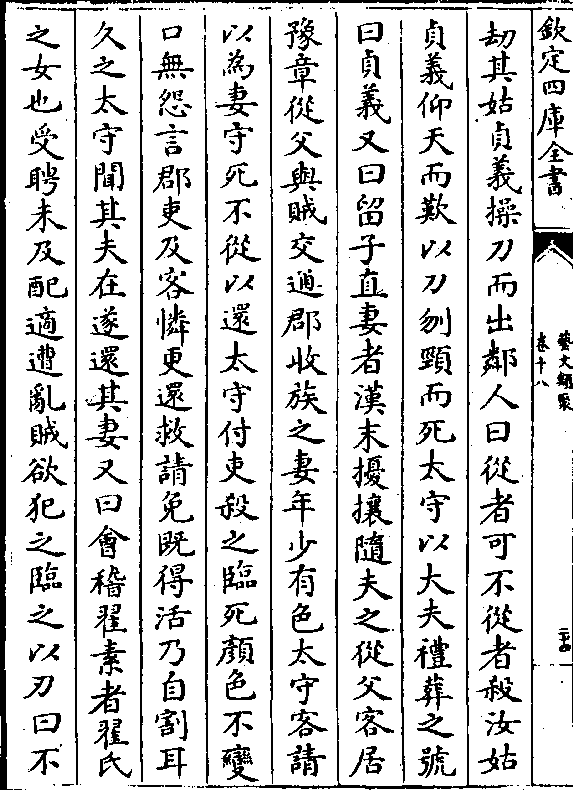 欽定四庫全書
藝文類聚
卷十八
二十四
刼其姑貞義操刀而出鄰人曰從者可不從者殺汝姑
貞義仰天而歎以刀刎頸而死太守以大夫禮葬之號
曰貞義又曰留子直妻者漢末擾攘隨夫之從父客居
豫章從父與賊交通郡收族之妻年少有色太守客請
以為妻守死不從以還太守付吏殺之臨死顔色不變
口無怨言郡吏及客憐更還救請免既得活乃自割耳
久之太守聞其夫在遂還其妻又曰會稽翟素者翟氏
之女也受聘未及配適遭亂賊欲犯之臨之以刃曰不